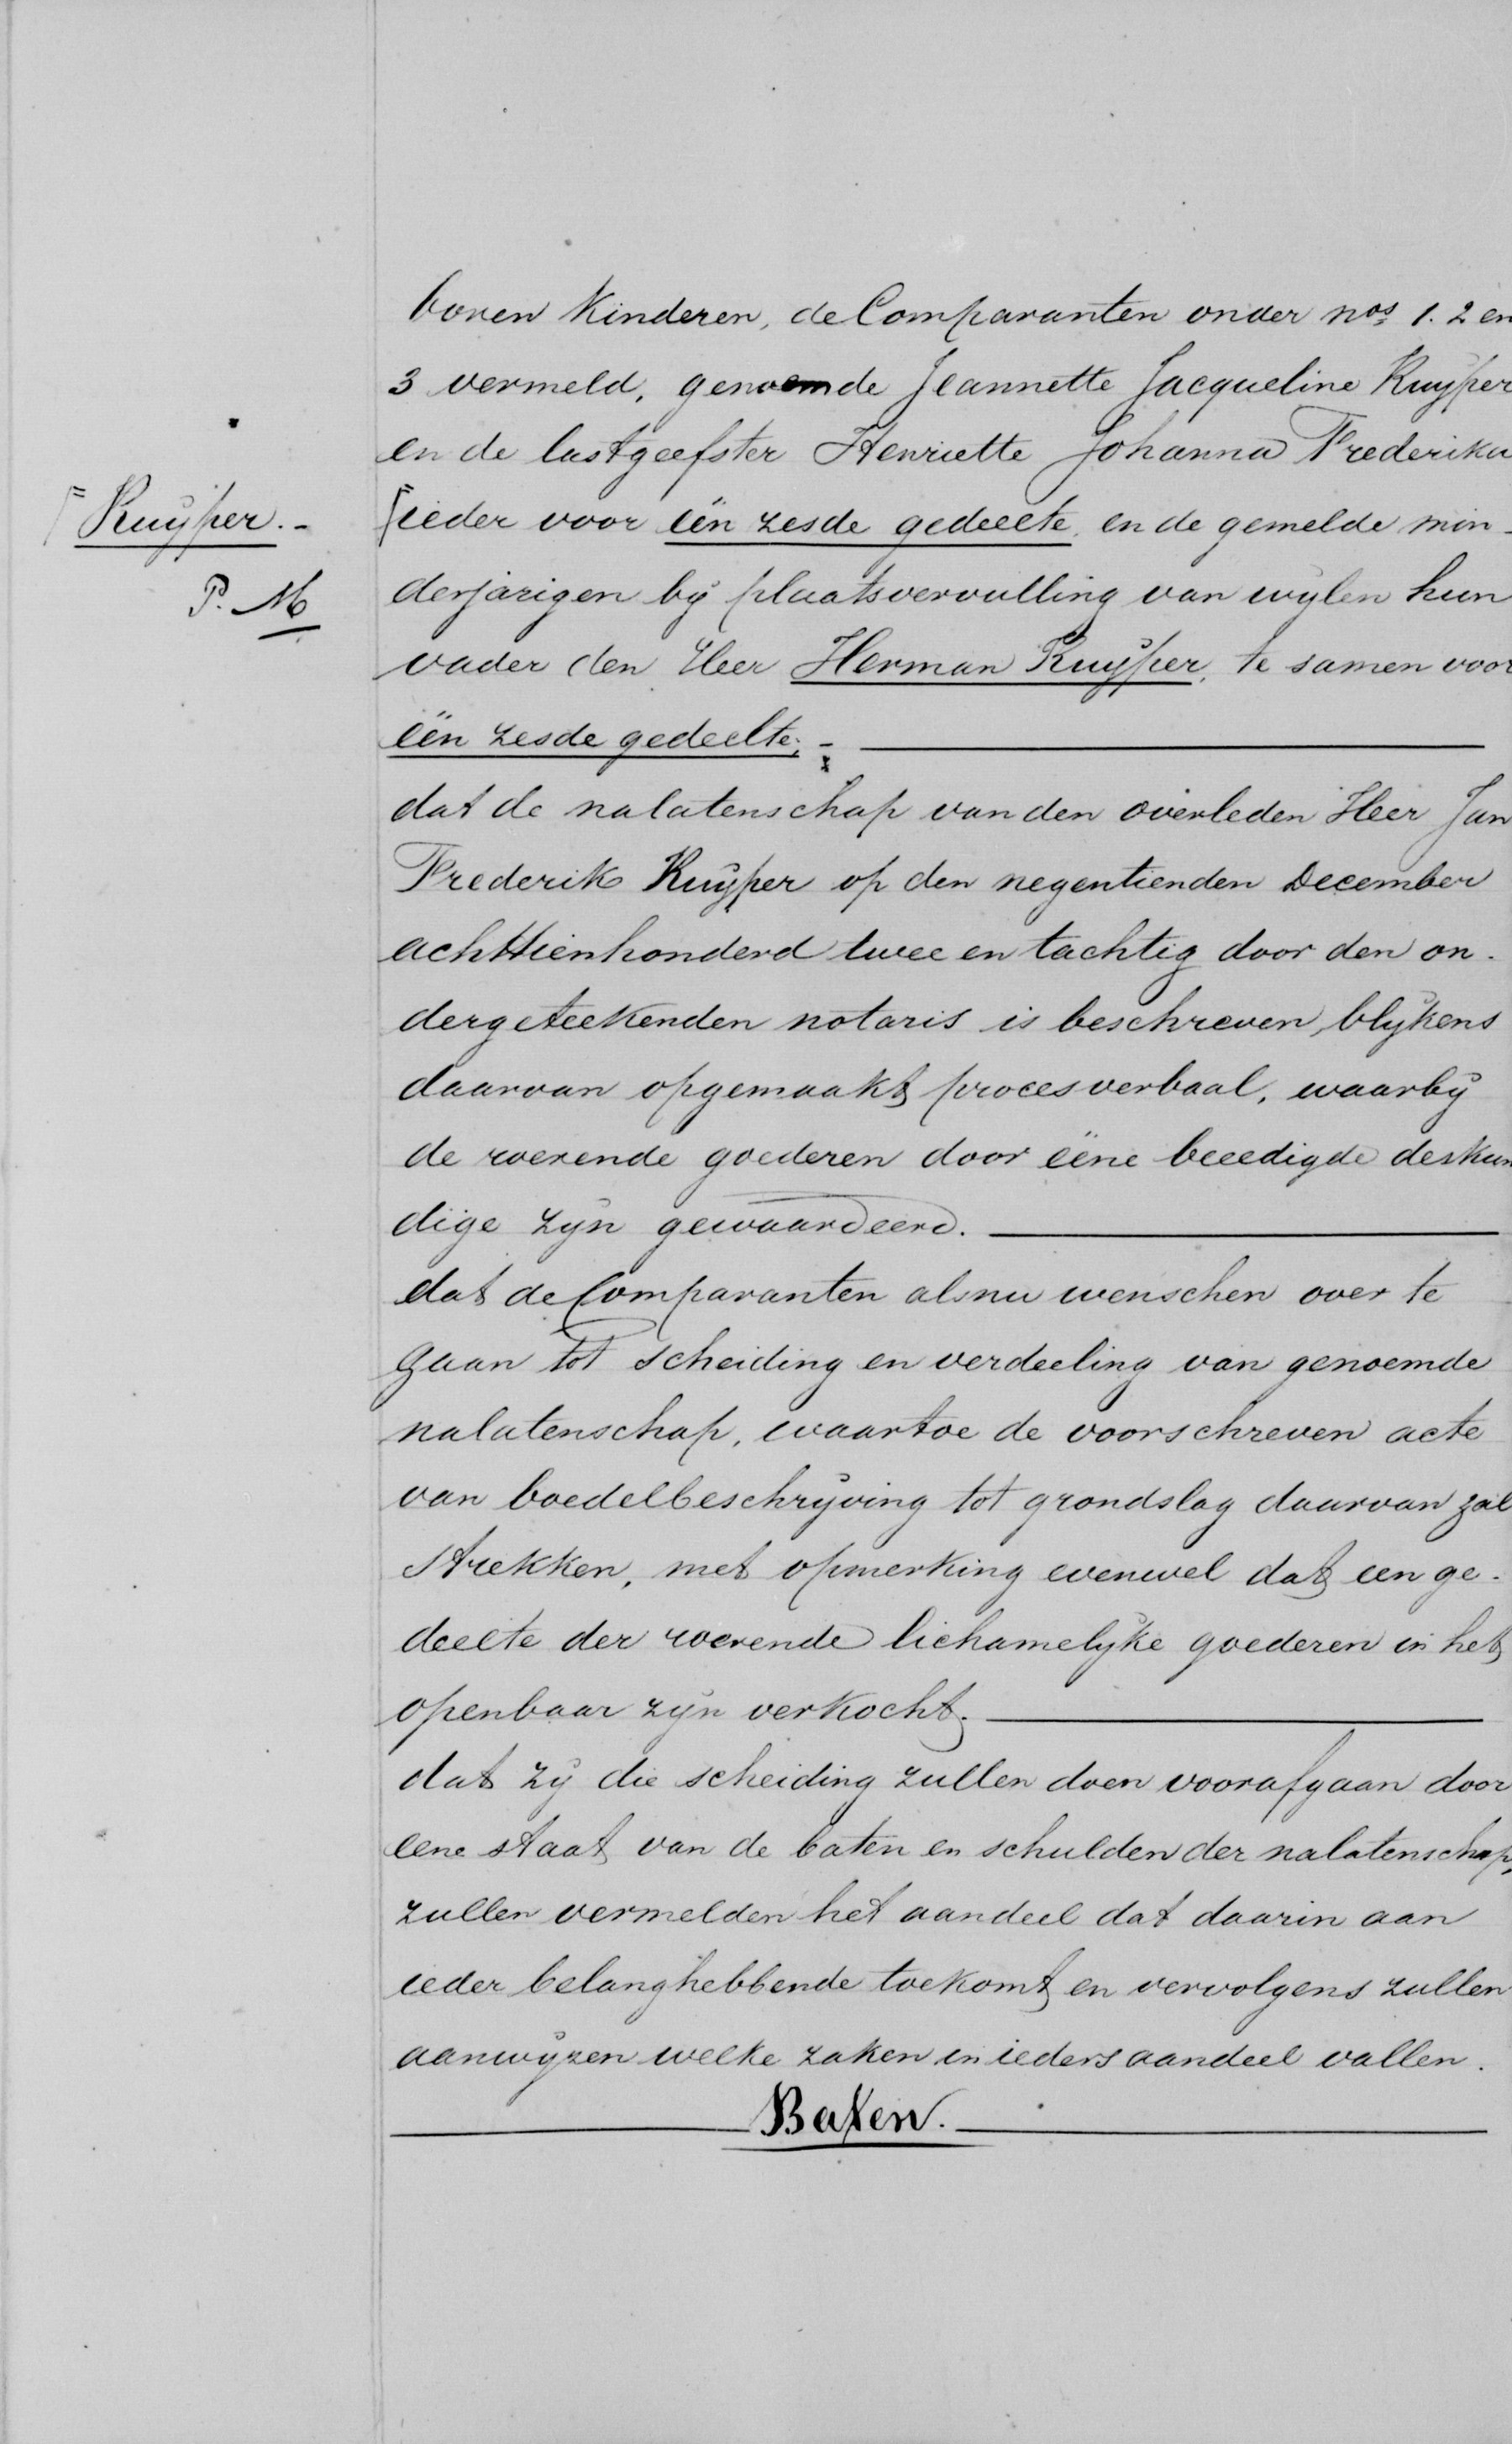 boren Kinderen, de Comparanten onder nos 1. 2 en
3 vermeld, genoemde Jeannette Jacqueline Kuijper
en de lastgeefster Henriette Johanna Frederika
⌈Kuijper.-
⌈ieder voor één zesde gedeelte, en de gemelde min-
P. M
derjarigen bij plaatsvervulling van wijlen hun
vader den Heer Herman Kuijper, te samen voor
één zesde gedeelte; -
dat de nalatenschap van den overleden Heer Jan
Frederik Kuijper op den negentienden December
achttienhonderd twee en tachtig door den on-
dergeteekenden notaris is beschreven, blijkens
daarvan opgemaakt procesverbaal, waarbij
de roerende goederen door ééne beeedigde deskun
dige zijn gewaardeerd.
dat de Comparanten alsnu wenschen over te
gaan tot scheiding en verdeeling van genoemde
nalatenschap, waartoe de voorschreven acte
van boedelbeschrijving tot grondslag daarvan zal
strekken, met opmerking evenwel dat een ge-
deelte der roerende lichamelijke goederen in het
openbaar zijn verkocht.
dat zij die scheiding zullen doen voorafgaan door
eene staat van de baten en schulden der nalatenschap,
zullen vermelden het aandeel dat daarin aan
ieder belanghebbende toekomt en vervolgens zullen
aanwijzen welke zaken in ieders aandeel vallen.
Baten.